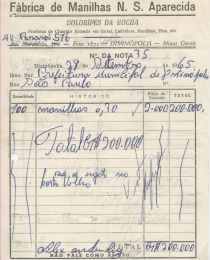 Fábrica de Manilhas N. S. Aparecida
DOLORIDES DA ROCHA
Produtos de Cimento Armado em Geral, Ladrilhos, Manilhas, Pias, etc.
AV Paraná 576
DIVINÓPOLIS - Minas Gerais
Nº DA NOTA 35
Divinópolis, 28 de Setembro de 1965
Ilmo. Snr. Prefeitura Municipal de Divinópolis
Rua São Paulo
Quantidade HISTÓRICO Preço da Unidade TOTAL
100 manilhas 0,30 2.000 200.000
Total Cr$ 200.000
TOTAL Cr$ 200.000
NÃO VALE COMO RECIBO